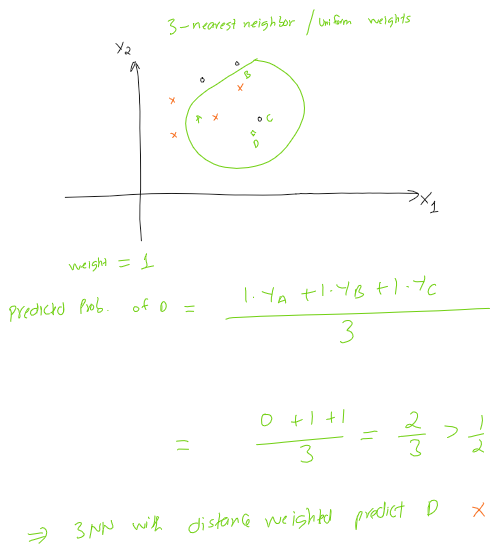 3-nearest neighbor / Uniform weights
X2
B
A
C
D
X1
weight = 1
predicted Prob. of D = 1·YA + 1·YB + 1·YC / 3
= 0 + 1 + 1 / 3 = 2/3 > 1/2
⇒ 3NN with distance weighted predict D x